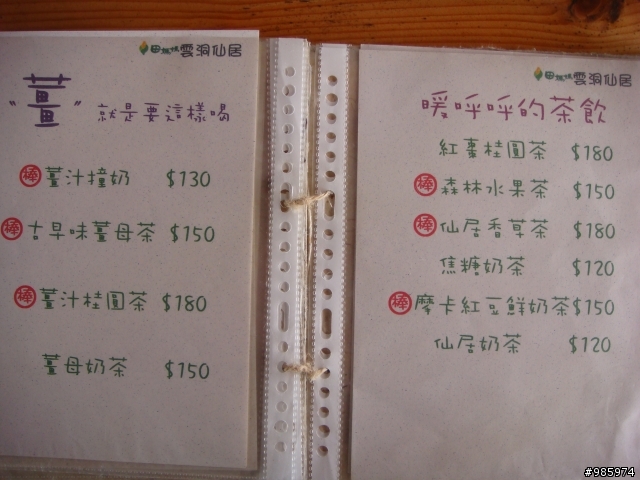 田媽媽雲洞仙居
"薑"就是要這樣喝
棒薑汁撞奶 $130
棒古早味薑母茶 $150
棒薑汁桂圓茶 $180
薑母奶茶 $150
田媽媽雲洞仙居
暖呼呼的茶飲
紅棗桂圓茶 $180
棒森林水果茶 $150
棒仙居香草茶 $180
焦糖奶茶 $120
棒摩卡紅豆鮮奶茶$150
仙居奶茶 $120
#985974